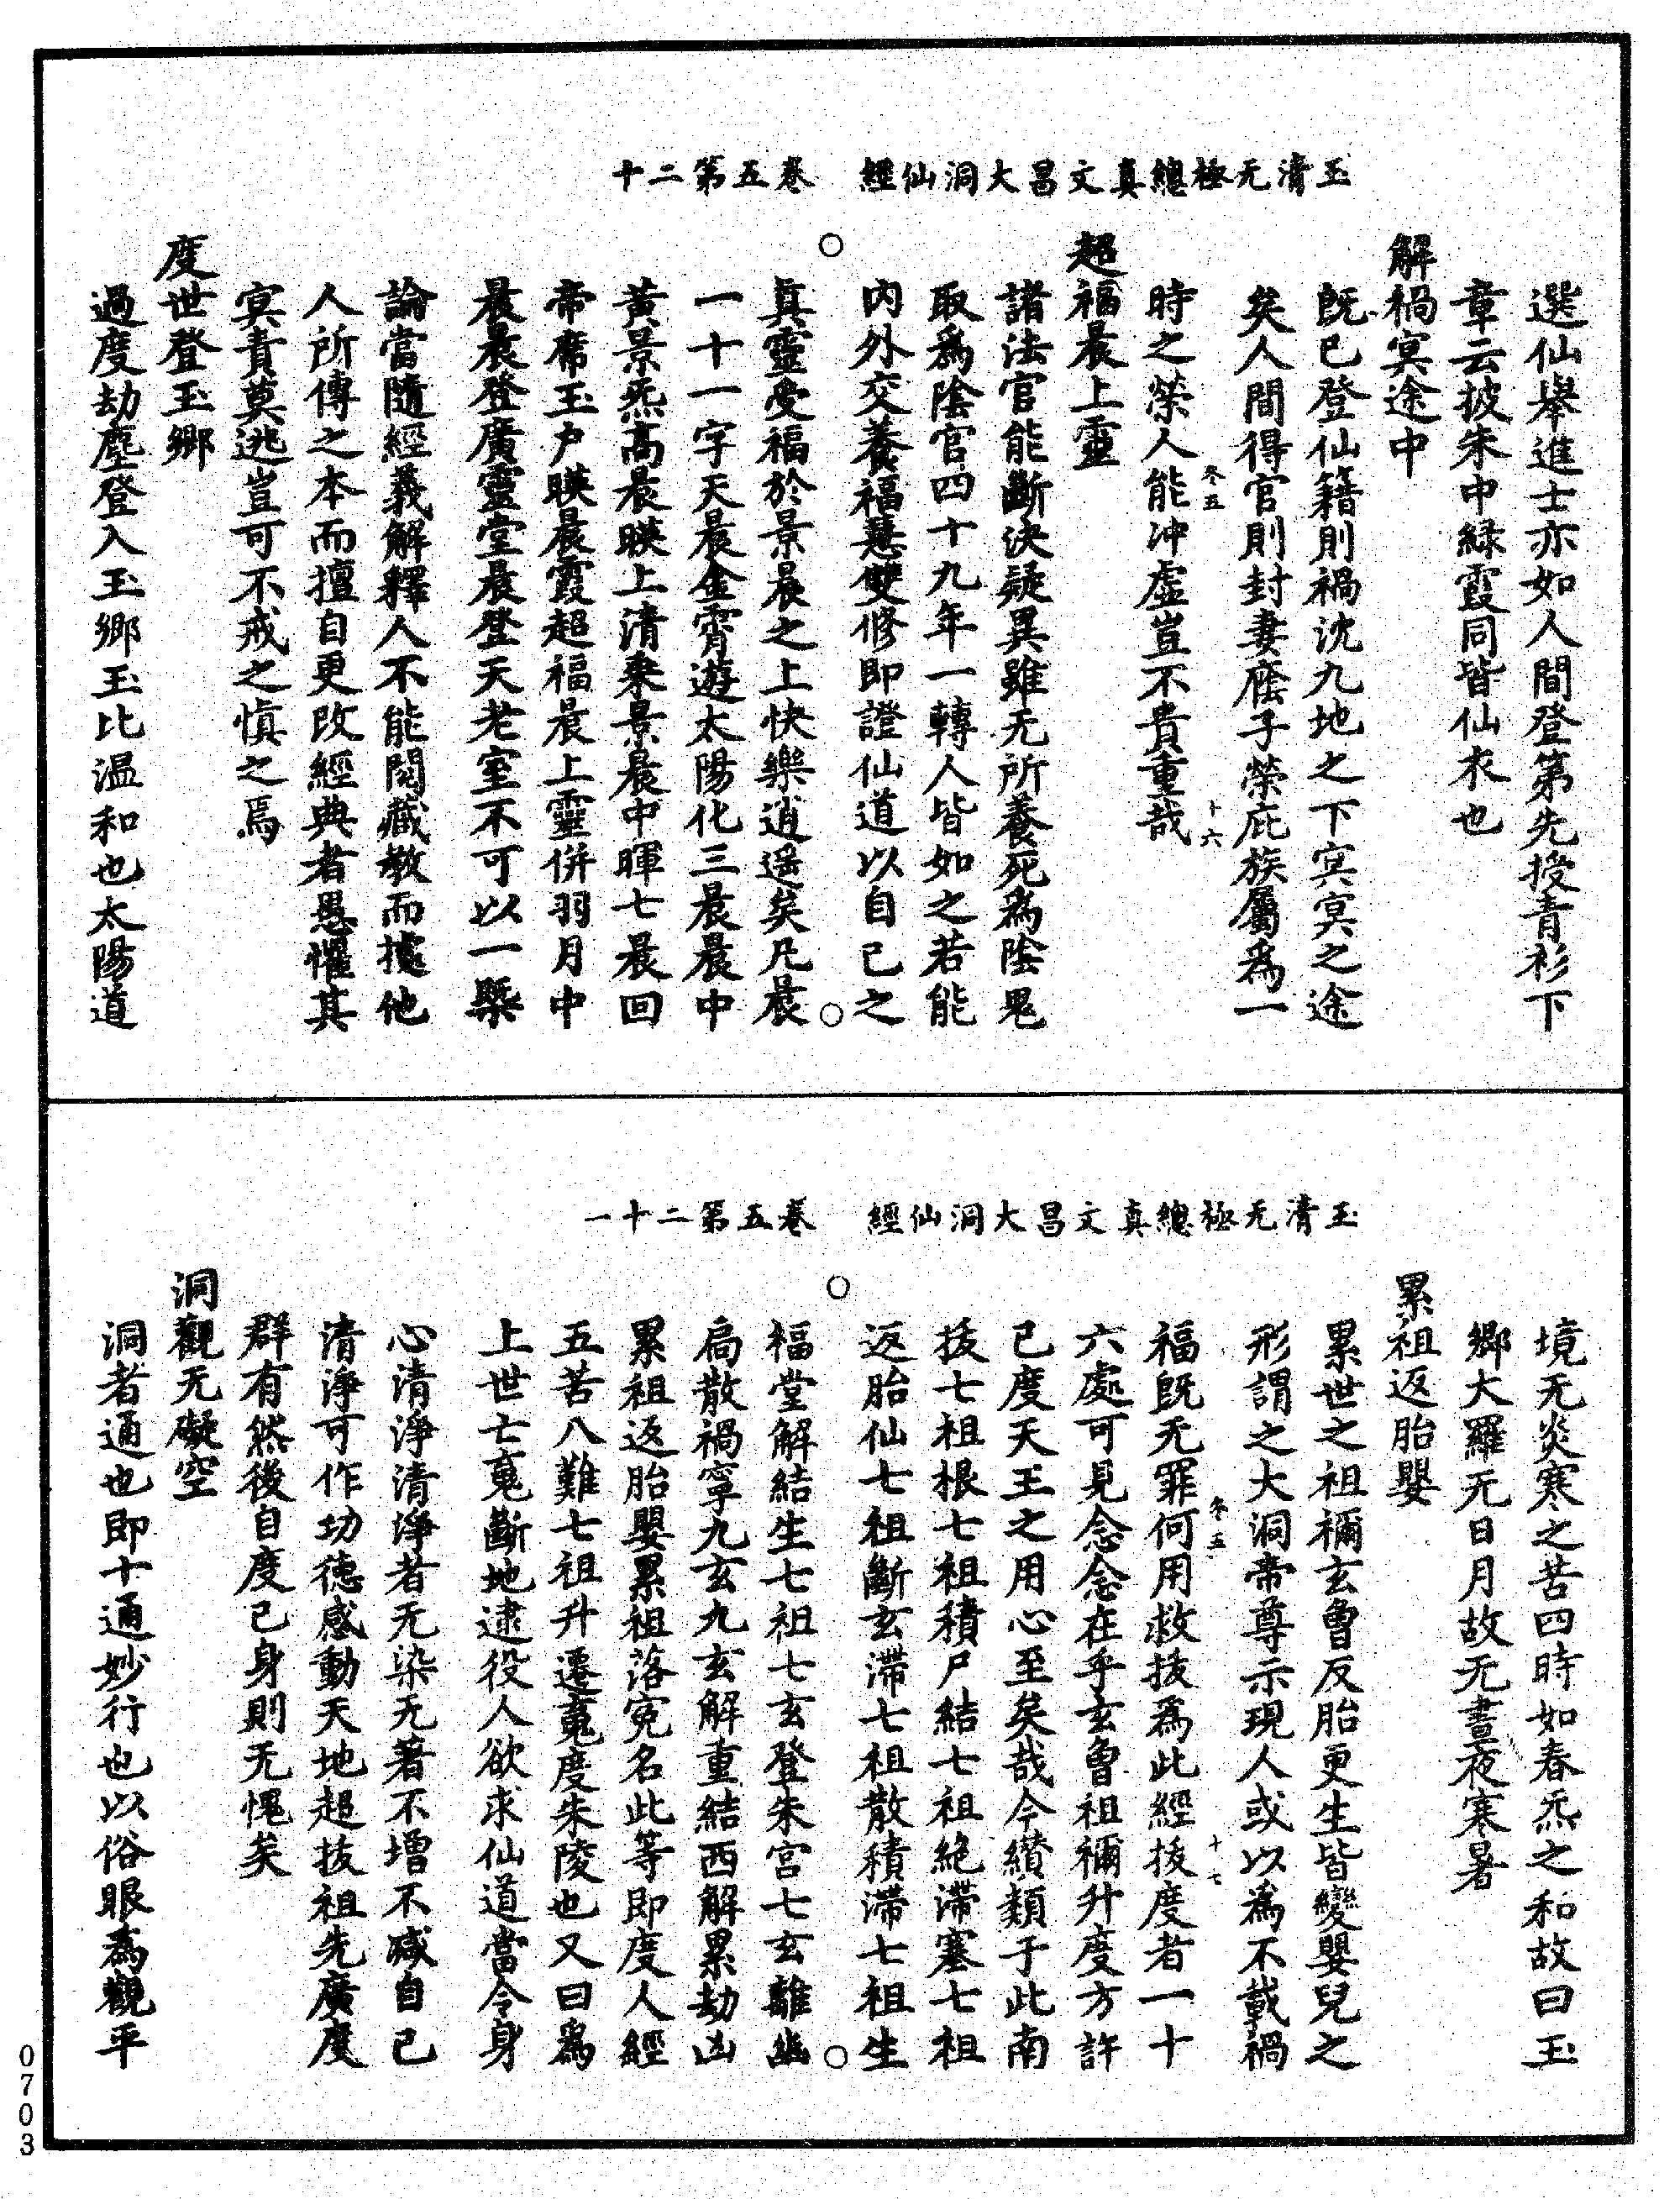 玉清无極總真文昌大洞仙經　卷五第二十
選仙舉進士亦如人間登第先授青衫下
章云披朱中緑霞同皆仙衣也
解禍冥途中
既已登仙籍則禍沈九地之下冥冥之途
矣人間得官則封妻廕子榮庇族屬爲一
冬五　十六
時之榮人能沖虛豈不貴重哉
超福晨上靈
諸法官能斷決疑異雖无所養死爲陰鬼
取爲陰官四十九年一轉人皆如之若能
内外交養福慧雙修即證仙道以自己之
真靈受福於景晨之上快樂逍遥矣凡晨
一十一字天晨金霄遊太陽化三晨晨中
黃景炁高晨暎上清乗景晨中暉七晨回
帝席玉户暎晨霞超福晨上靈併羽月中
晨晨登廣靈堂晨登天老室不可以一槩
論當隨經義解釋人不能閱藏教而據他
人所傳之本而擅自更改經典者愚懼其
冥責莫逃豈可不戒之慎之焉
度世登玉鄉
過度劫塵登入玉鄉玉比温和也太陽道
玉清无極總真文昌大洞仙經　卷五第二十一
境无炎寒之苦四時如春炁之和故曰玉
鄉大羅无日月故无晝夜寒暑
累祖返胎嬰
累世之祖禰玄曾反胎更生皆變嬰兒之
形謂之大洞帝尊示現人或以為不載禍
冬五　十七
福既无罪何用救拔爲此經拔度者一十
六處可見念念在乎玄曾祖禰升度方許
己度天王之用心至矣哉今纉類于此南
拔七祖根七祖積尸結七祖絶滯塞七祖
返胎仙七祖斷玄滯七祖散積滯七祖生
福堂解結生七祖七玄登朱宮七玄離幽
扃散禍寧九玄九玄解重結西解累劫凶
累祖返胎嬰累祖落寃名此等即度人經
五苦八難七祖升遷䰟度朱陵也又曰爲
上世亡䰟斷地逮役人欲求仙道當令身
心清淨清淨者无染无著不增不减自己
清淨可作功德感動天地超拔祖先廣度
群有然後自度己身則无愧矣
洞觀无礙空
洞者通也即十通妙行也以俗眼為觀平
0703